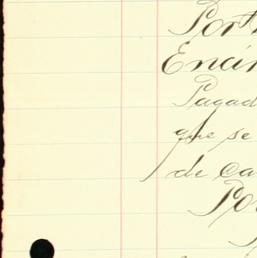 Port
Encin
Pagad
que se
de ca
Po